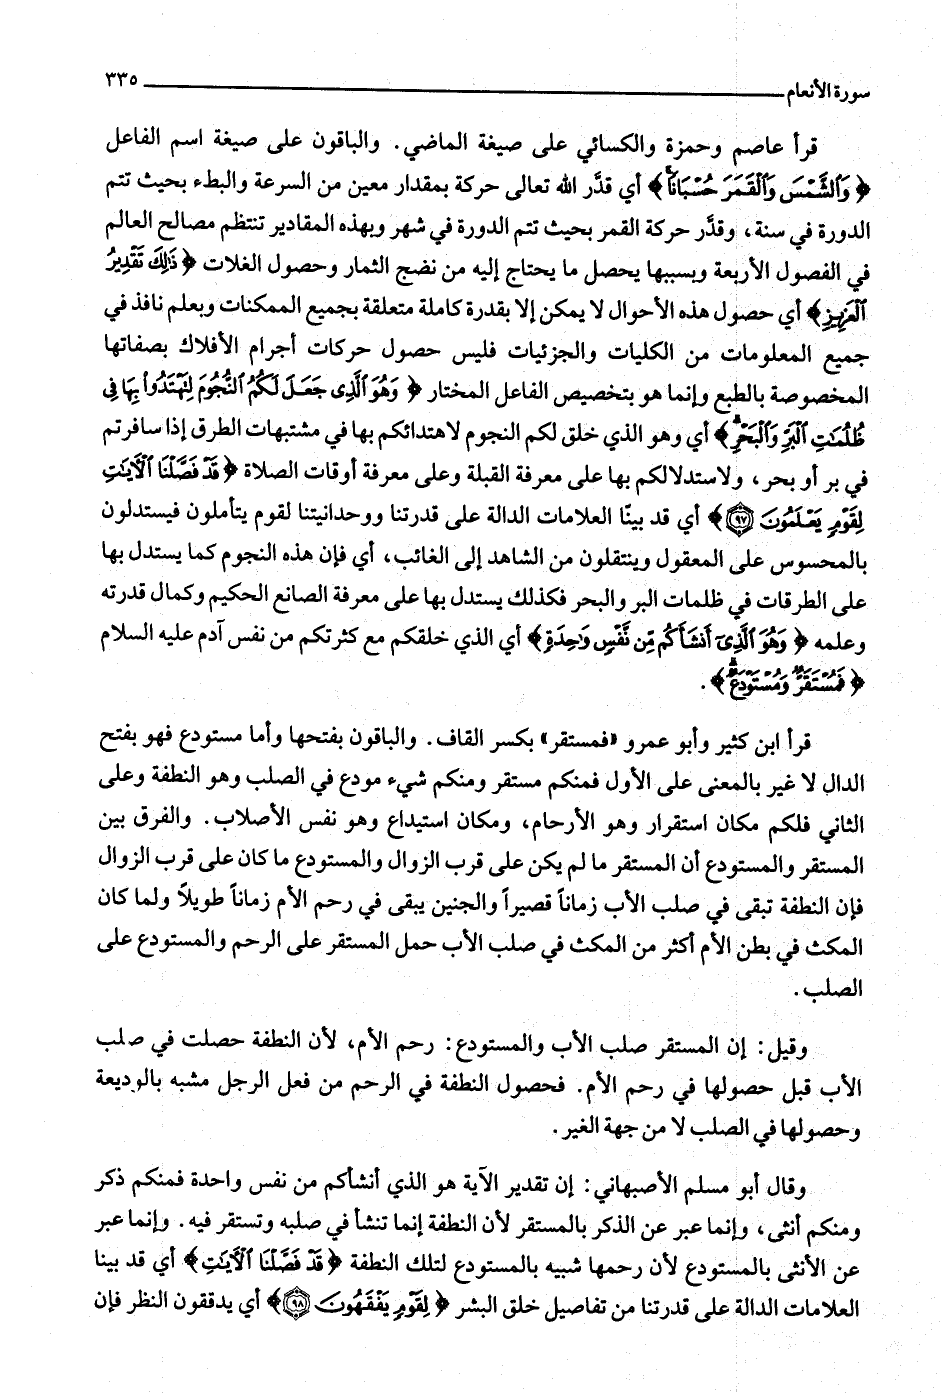 سورة الأنعام ٣٣٥
قرأ عاصم وحمزة والكسائي على صيغة الماضي. والباقون على صيغة اسم الفاعل
﴿ وَالشَّمْسَ وَالْقَمَرَ حُسْبَانًا﴾ أي قدَّر الله تعالى حركة بمقدار معين من السرعة والبطء بحيث تتم
الدورة في سنة، وقدَّر حركة القمر بحيث تتم الدورة في شهر وبهذه المقادير تنتظم مصالح العالم
في الفصول الأربعة وبسببها يحصل ما يحتاج إليه من نضج الثمار وحصول الغلات ﴿ ذَٰلِكَ تَقْدِيرُ
الْعَزِيزِ﴾ أي حصول هذه الأحوال لا يمكن إلا بقدرة كاملة متعلقة بجميع الممكنات وبعلم نافذ في
جميع المعلومات من الكليات والجزئيات فليس حصول حركات أجرام الأفلاك بصفاتها
المخصوصة بالطبع وإنما هو بتخصيص الفاعل المختار ﴿ وَهُوَ الَّذِي جَعَلَ لَكُمُ النُّجُومَ لِتَهْتَدُوا بِهَا فِي
ظُلُمَٰتِ الْبَرِّ وَالْبَحْرِ﴾ أي وهو الذي خلق لكم النجوم لاهتدائكم بها في مشتبهات الطرق إذا سافرتم
في بر أو بحر، ولاستدلالكم بها على معرفة القبلة وعلى معرفة أوقات الصلاة ﴿ قَدْ فَصَّلْنَا الْآيَٰتِ
لِقَوْمٍ يَعْلَمُونَ ٩٧﴾ أي قد بينّا العلامات الدالة على قدرتنا ووحدانيتنا لقوم يتأملون فيستدلون
بالمحسوس على المعقول وينتقلون من الشاهد إلى الغائب، أي فإن هذه النجوم كما يستدل بها
على الطرقات في ظلمات البر والبحر فكذلك يستدل بها على معرفة الصانع الحكيم وكمال قدرته
وعلمه ﴿ وَهُوَ الَّذِي أَنشَأَكُم مِّن نَّفْسٍ وَٰحِدَةٍ﴾ أي الذي خلقكم مع كثرتكم من نفس آدم عليه السلام
﴿ فَمُسْتَقَرٌّ وَمُسْتَوْدَعٌ﴾.
قرأ ابن كثير وأبو عمرو «فمستقر» بكسر القاف. والباقون بفتحها وأما مستودع فهو بفتح
الدال لا غير بالمعنى على الأول فمنكم مستقر ومنكم شيء مودع في الصلب وهو النطفة وعلى
الثاني فلكم مكان استقرار وهو الأرحام، ومكان استيداع وهو نفس الأصلاب. والفرق بين
المستقر والمستودع أن المستقر ما لم يكن على قرب الزوال والمستودع ما كان على قرب الزوال
فإن النطفة تبقى في صلب الأب زماناً قصيراً والجنين يبقى في رحم الأم زماناً طويلاً ولما كان
المكث في بطن الأم أكثر من المكث في صلب الأب حمل المستقر على الرحم والمستودع على
الصلب.
وقيل: إن المستقر صلب الأب والمستودع: رحم الأم، لأن النطفة حصلت في صلب
الأب قبل حصولها في رحم الأم. فحصول النطفة في الرحم من فعل الرجل مشبه بالوديعة
وحصولها في الصلب لا من جهة الغير.
وقال أبو مسلم الأصبهاني: إن تقدير الآية هو الذي أنشأكم من نفس واحدة فمنكم ذكر
ومنكم أنثى، وإنما عبر عن الذكر بالمستقر لأن النطفة إنما تنشأ في صلبه وتستقر فيه. وإنما عبر
عن الأنثى بالمستودع لأن رحمها شبيه بالمستودع لتلك النطفة ﴿قَدْ فَصَّلْنَا الْآيَٰتِ﴾ أي قد بينا
العلامات الدالة على قدرتنا من تفاصيل خلق البشر ﴿ لِقَوْمٍ يَفْقَهُونَ ٩٨﴾ أي يدققون النظر فإن